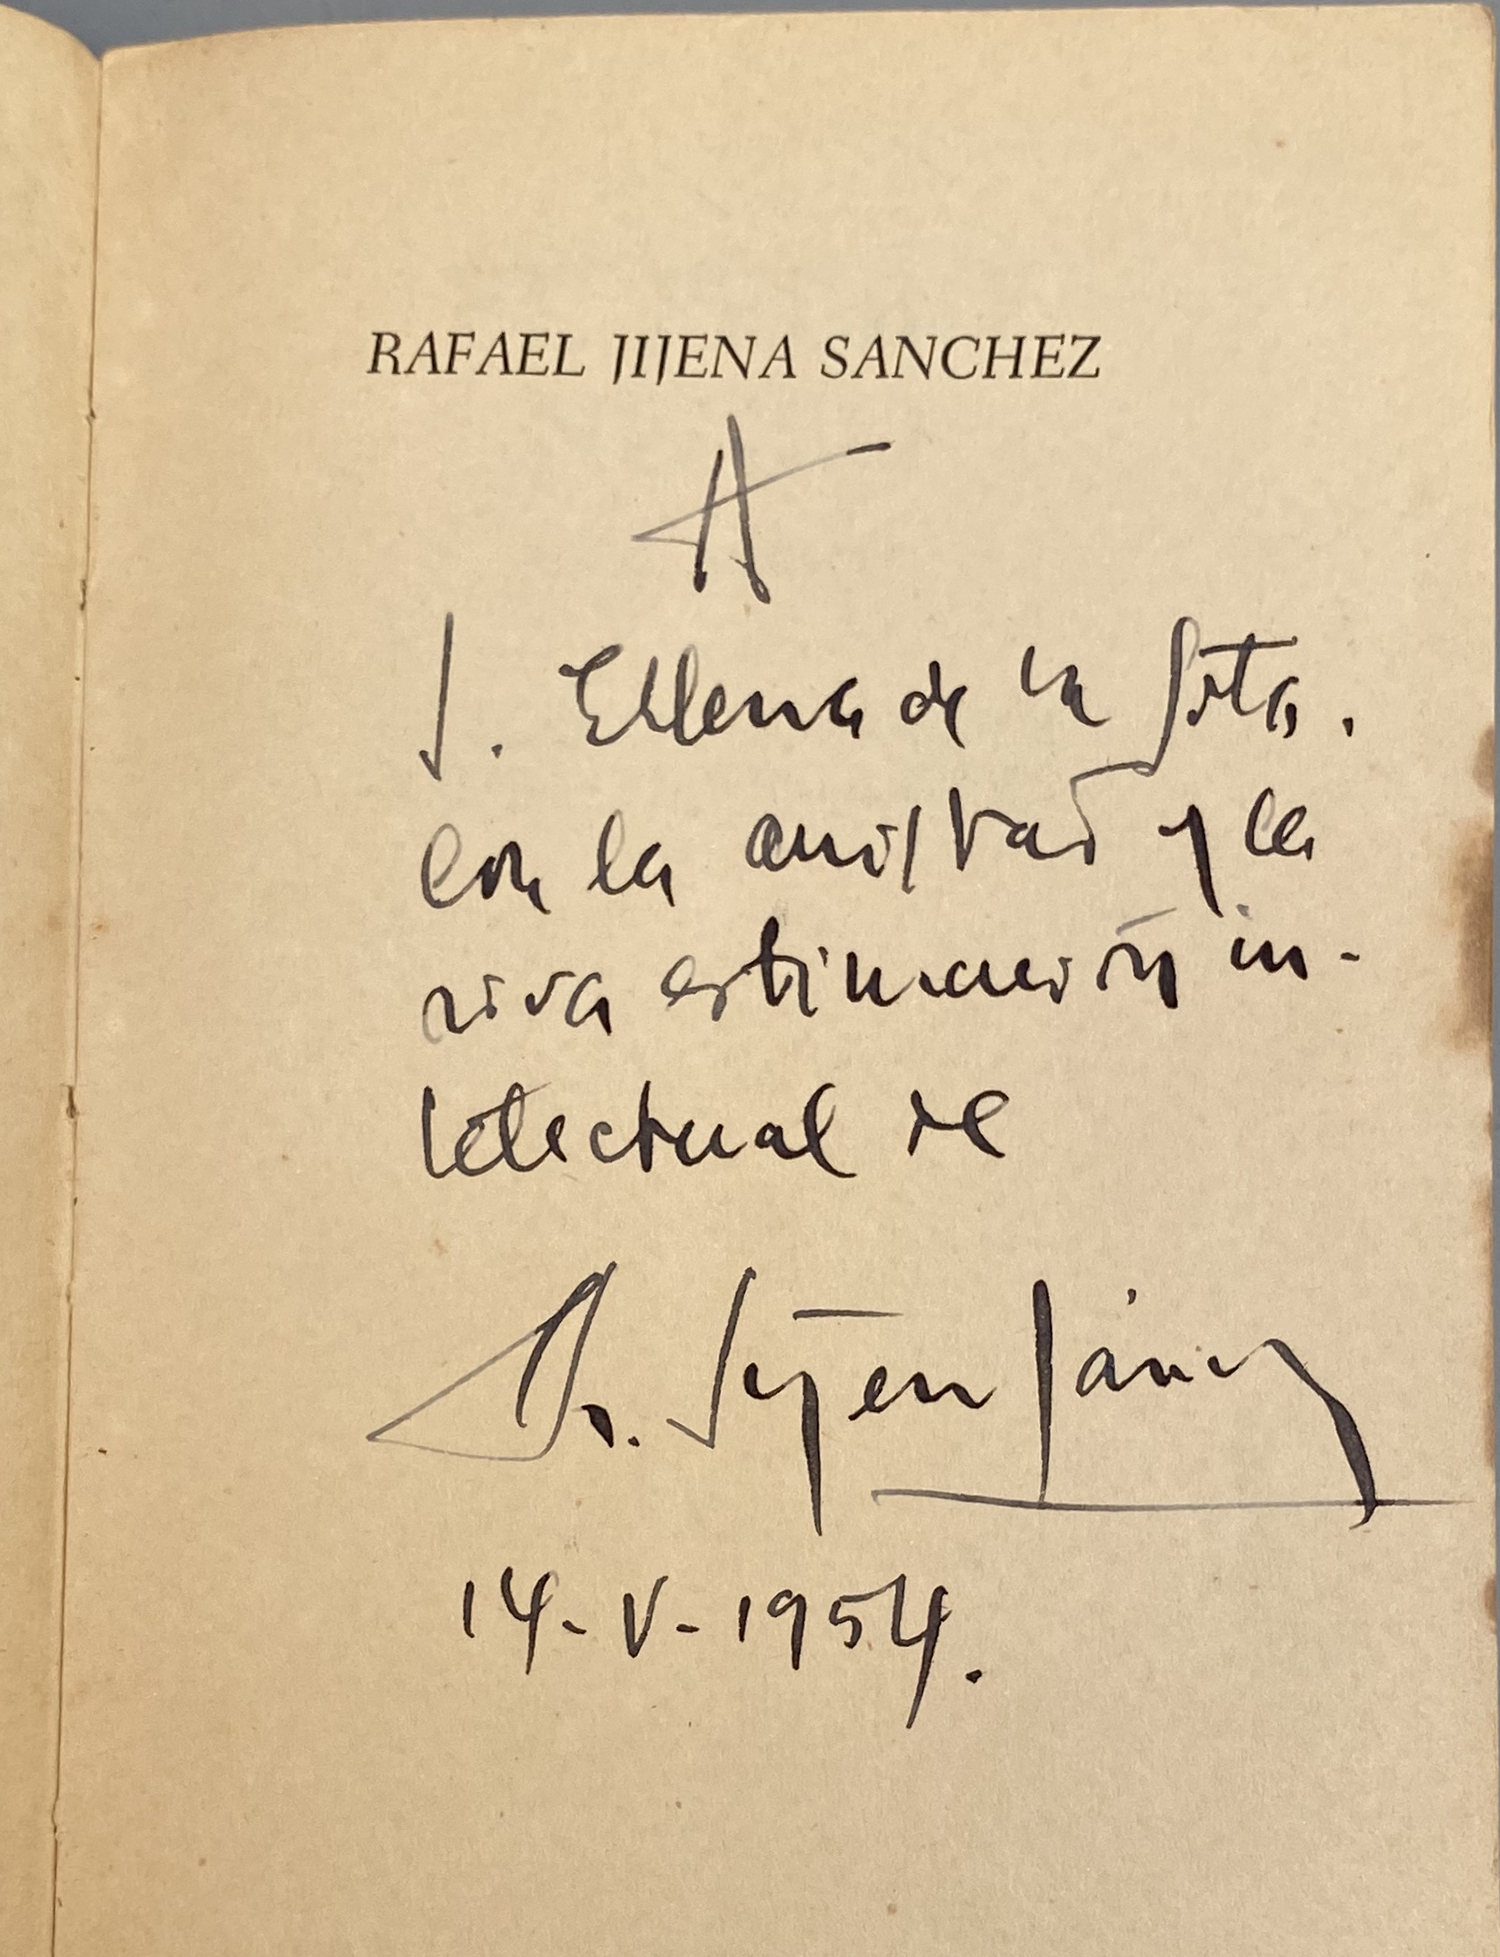 RAFAEL JIJENA SANCHEZ
A
J. Ellena de la Sota.
con la amistad y la
viva estimación in-
telectual de
R. Jijena Sánchez
14-V-1954.